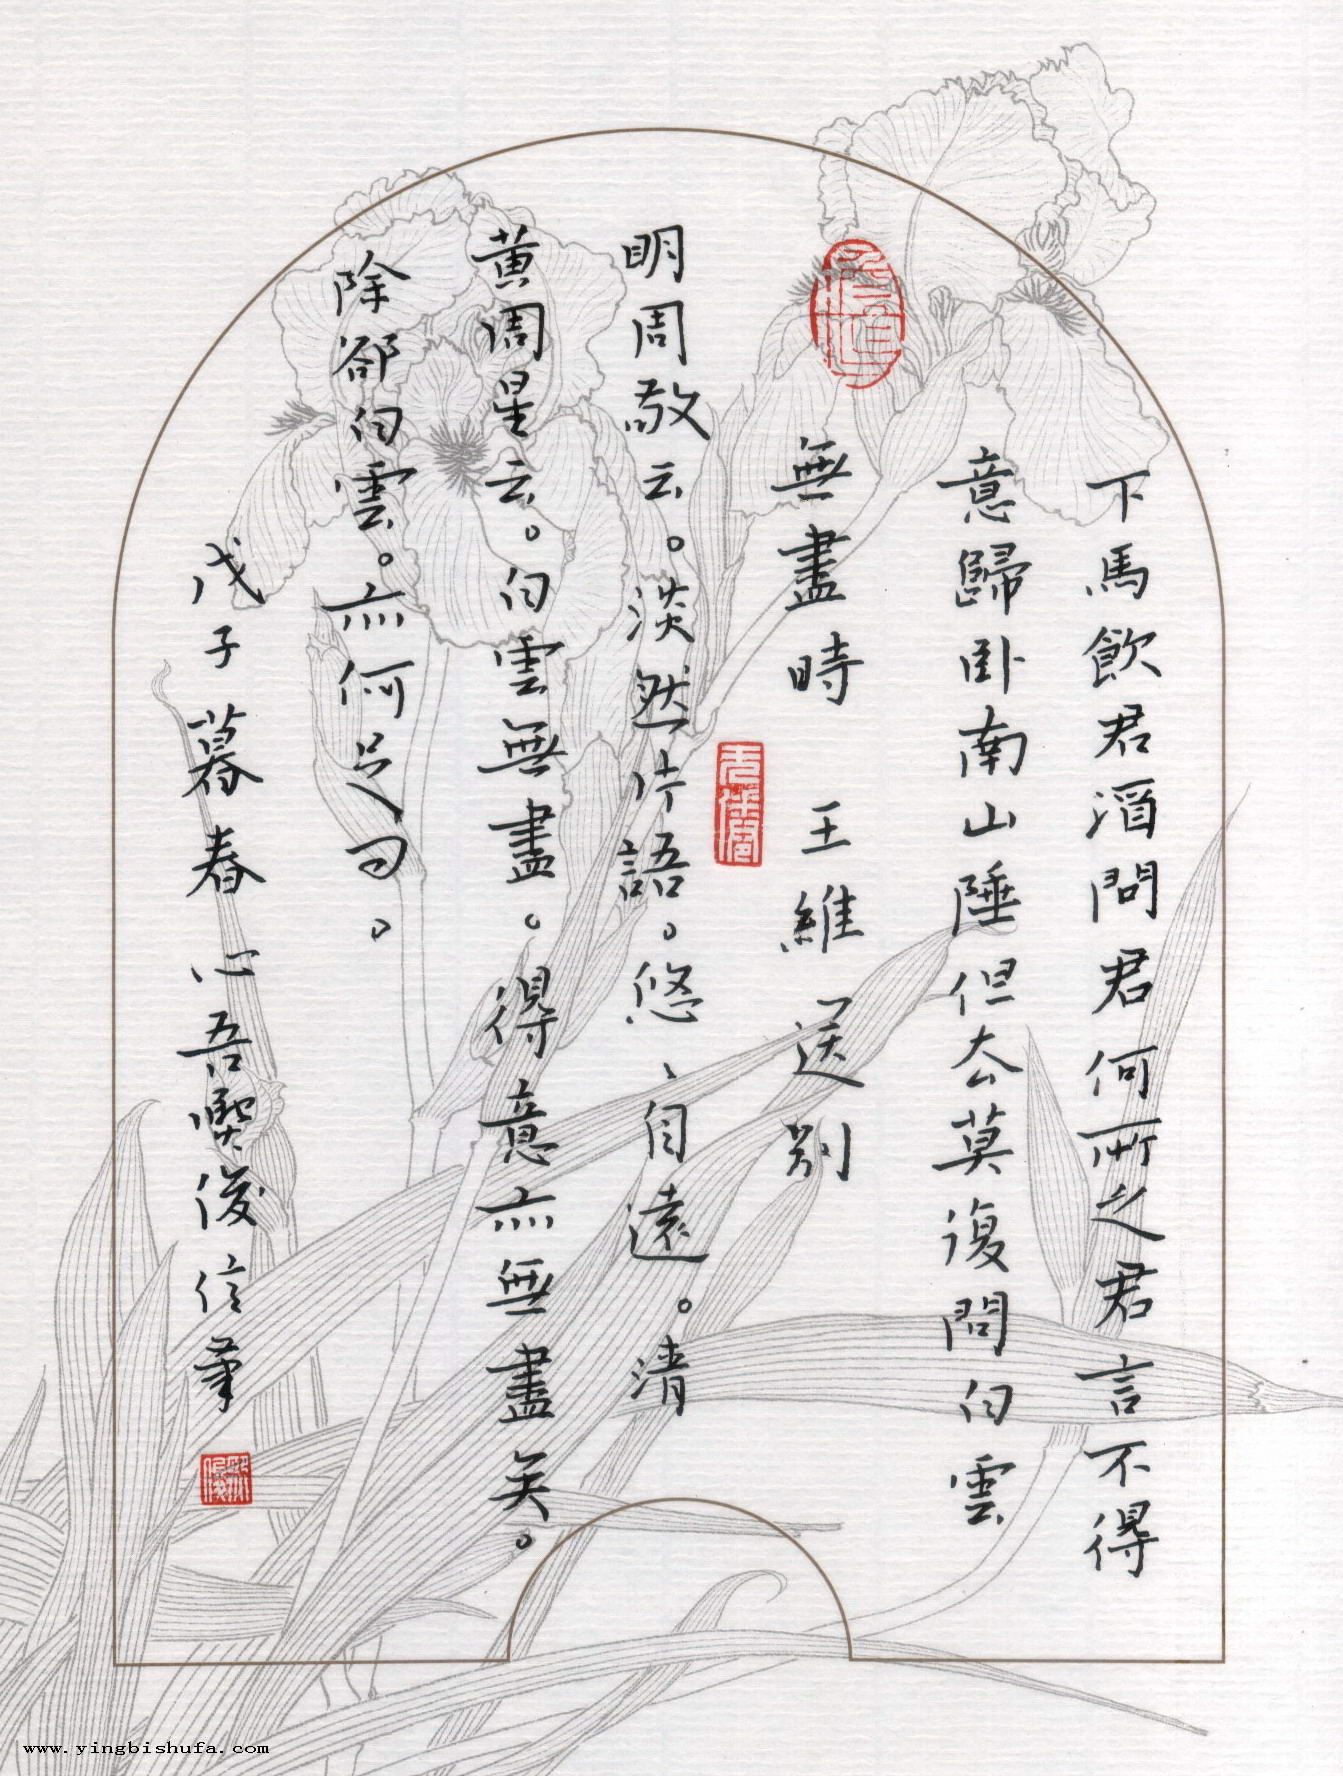 下馬飲君酒問君何所之君言不得
意歸卧南山陲但去莫復問白雲
無盡時 王維 送别
明周敬云。淡然片語。悠、自遠。清
黄周星云。白雲無盡。得意亦無盡矣。
除郤白雲。亦何足问。
戊子暮春心吾俊信筆
www.yingbishufa.com